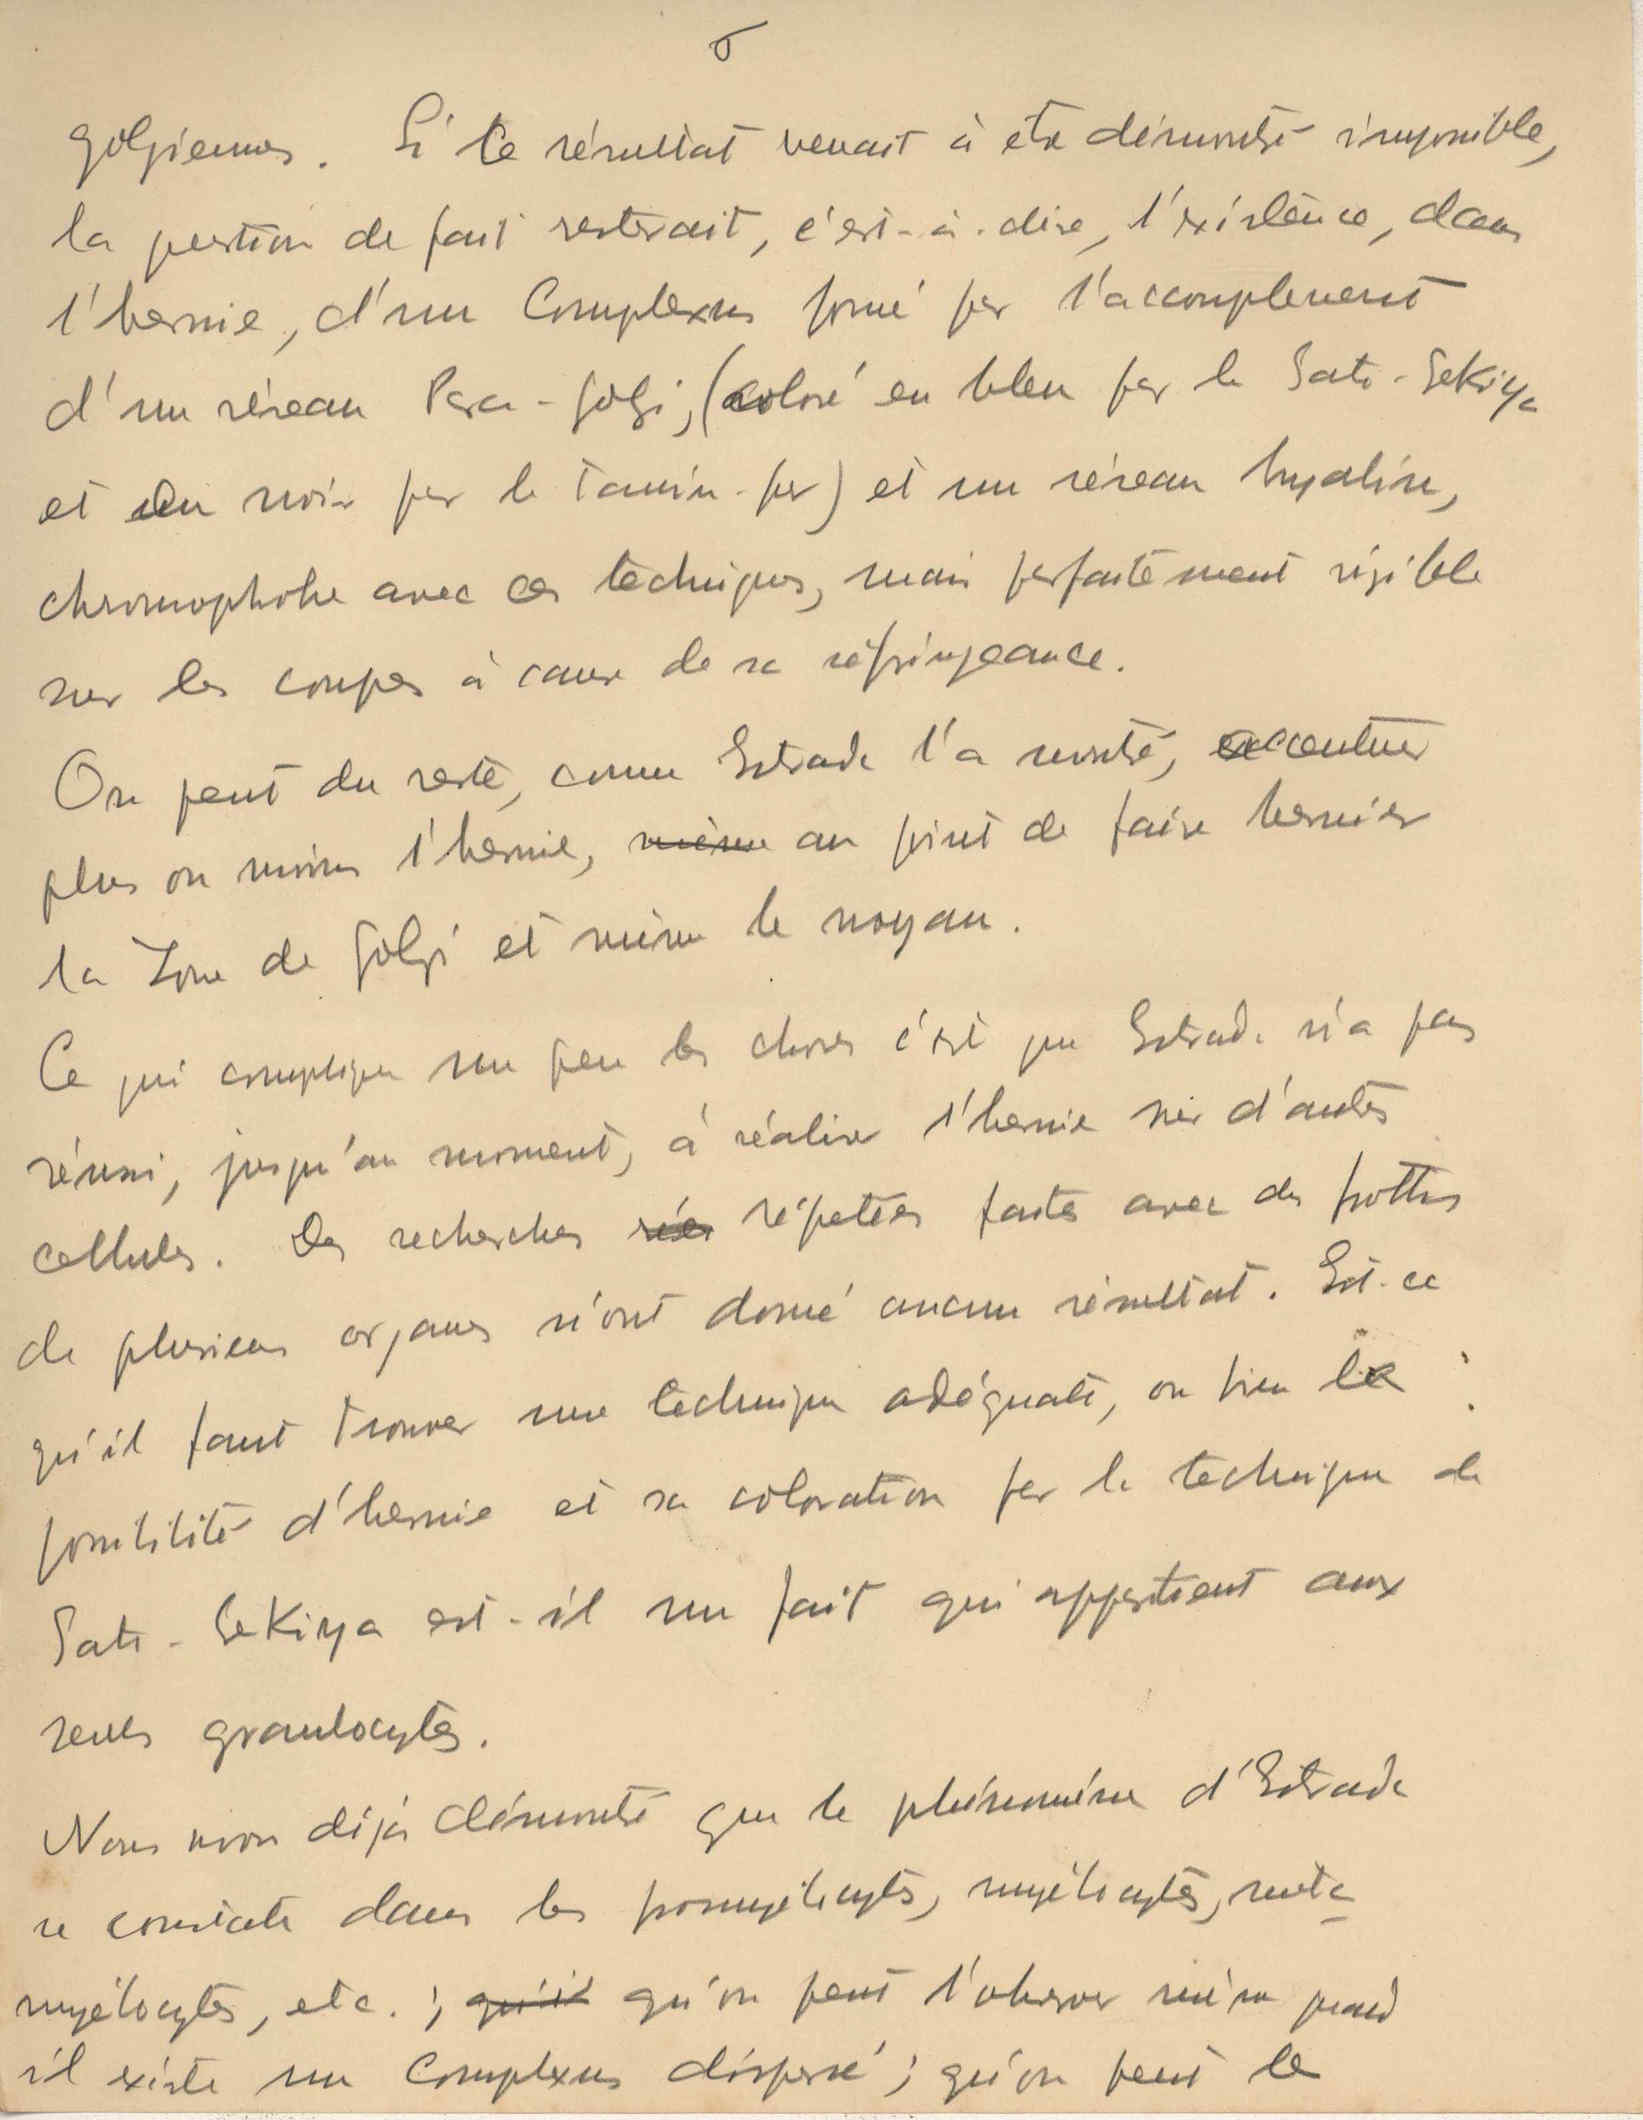 5
golgiennes. Si le résultat venait à être démontré impossible,
la question de fait resterait, c'est-à-dire, l'existence, dans
l'hernie, d'un Complexus formé par l'accouplement
d'un réseau Para-Golgi, (coloré en bleu par le Sato-Sekiya
et en noir par le tannin-fer) et un réseau hyalin,
chromophobe avec ces techniques, mais parfaitement visible
sur les coupes à cause de sa réfringeance.
On peut du reste, comme Estrada l'a montré, accentuer
plus ou moins l'hernie, même au point de faire hernier
la Zone de Golgi et même le noyau.
Ce qui complique un peu les choses c'est que Estrada n'a pas
réussi, jusqu'au moment, à réaliser l'hernie sur d'autres
cellules. Des recherches répetées faites avec des frottis
de plusieurs organes n'ont donné aucun résultat. Est-ce
qu'il faut trouver une technique adéquate, ou bien la
possibilité d'hernie et sa coloration par la technique de
Sato-Sekiya est-il un fait qui appartient aux
seuls granulocytes.
Nous avons déjà démontré que le phénomène d'Estrada
se constate dans les promyélocytes, myélocytes, méta-
myélocytes, etc.; qu'il qu'on peut l'observer même quand
il existe un Complexus dispersé; qu'on peut le